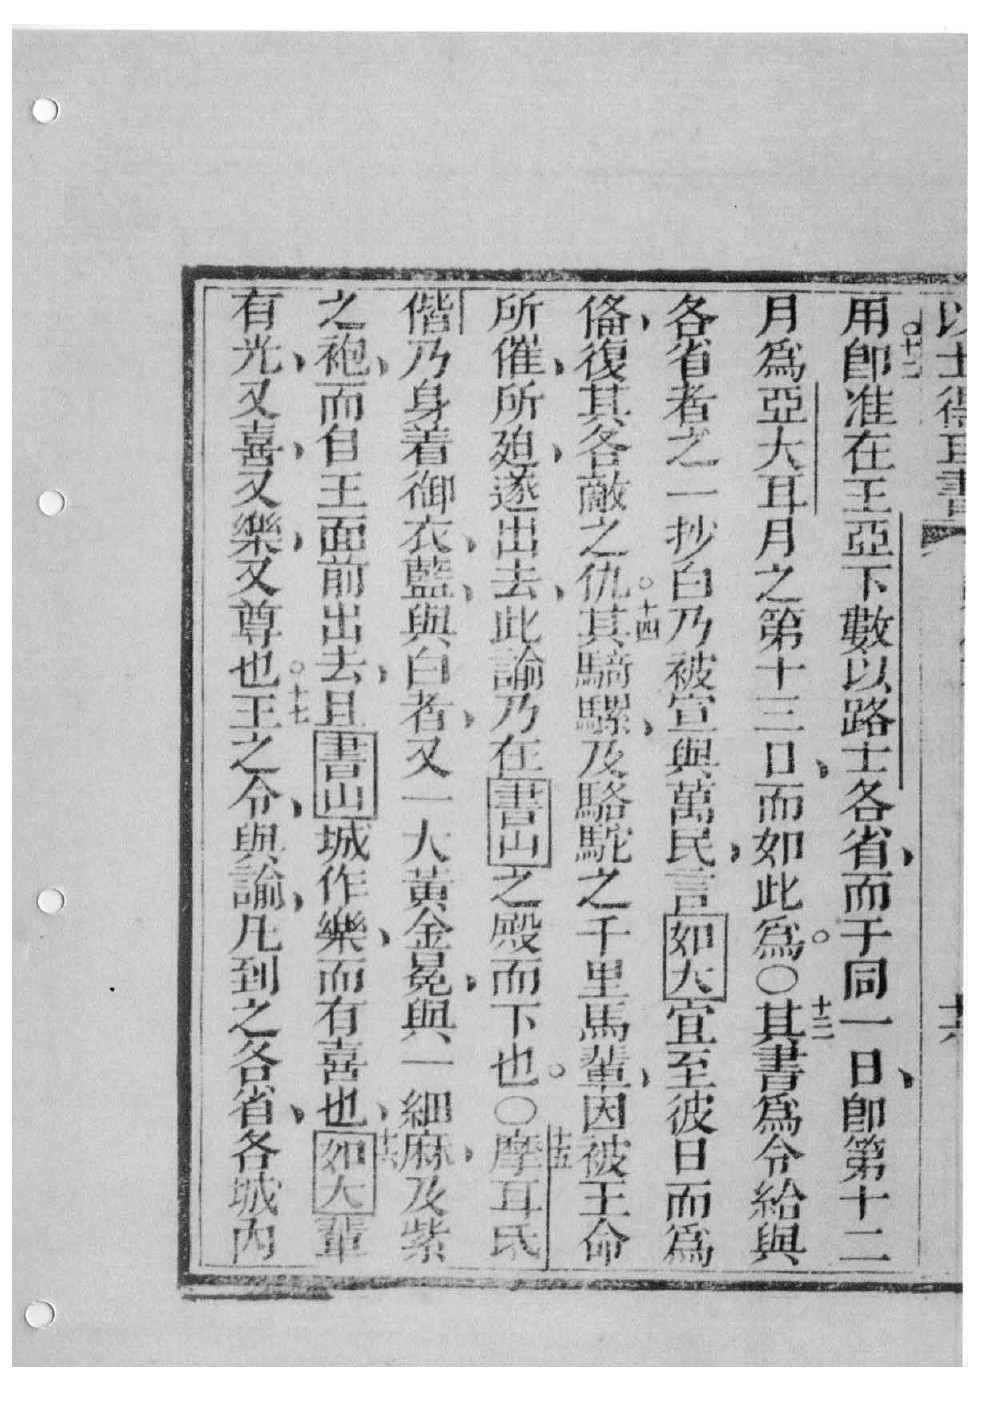 以士得耳書 十六
用○十二即准在王亞下數以路士各省而于同一日即第十二
月爲亞大耳月之第十三日而如此爲。○十三其書爲令給與
各省者之一抄白乃被宣與萬民言如大宜至彼日而爲
俻復其各敵之仇○十四其騎騾及駱駝之千里馬輩因被王命
所催所廹遂出去此諭乃在書山之殿而下也。○十五摩耳氏
偕乃身着御衣藍與白者又一大黃金冕與一細麻及紫
之袍而自王面前出去且書山城作樂而有喜也十六如大輩
有光又喜又樂又尊也○十七王之令與諭凡到之各省各城內